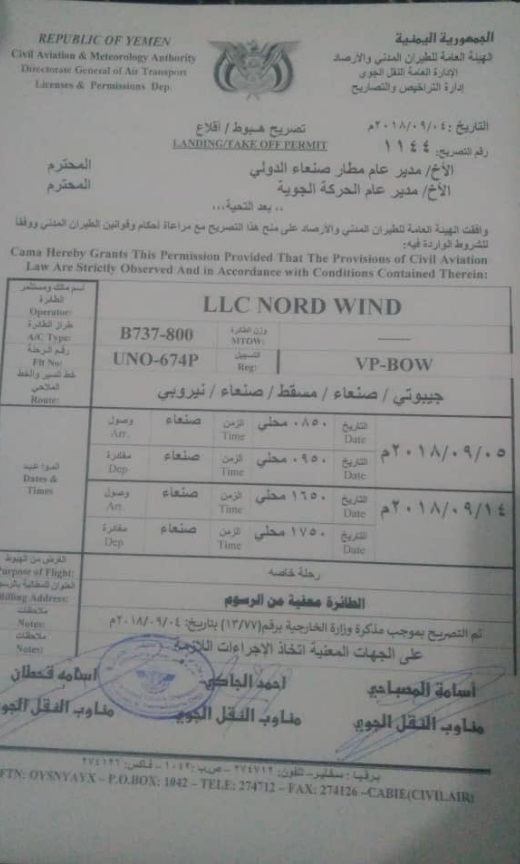 REPUBLIC OF YEMEN
Civil Aviation & Meteorology Authority
Directorate General of Air Transport
Licenses & Permissions Dep.
الجمهورية اليمنية
الهيئة العامة للطيران المدني والأرصاد
الإدارة العامة النقل الجوي
إدارة التراخيص والتصاريح
التاريخ : ٢٠١٨/٠٩/٠٤م
رقم التصريح: ١١٤٤
تصريح هبوط / أقلاع
LANDING/TAKE OFF PERMIT
الأخ/ مدير عام مطار صنعاء الدولي المحترم
الأخ/ مدير عام الحركة الجوية المحترم
.. بعد التحية،،،
وافقت الهيئة العامة للطيران المدني والأرصاد على منح هذا التصريح مع مراعاة أحكام وقوانين الطيران المدني ووفقاً
للشروط الواردة فيه:
Cama Hereby Grants This Permission Provided That The Provisions of Civil Aviation
Law Are Strictly Observed And in Accordance with Conditions Contained Therein:
اسم مالك ومستثمر
الطائرة
Operator:
LLC NORD WIND
طراز الطائرة
A/C Type:
B737-800
وزن الطائرة
MTOW:
رقم الرحلة
Flt No:
UNO-674P
التسجيل
Reg:
VP-BOW
خط السير والخط
الملاحي
Route:
جيبوتي / صنعاء / مسقط / صنعاء / نيروبي
المواعيد
Dates &
Times
وصول
Arr.
صنعاء
الزمن
Time
٠٨٥٠ محلي
التاريخ
Date
٢٠١٨/٠٩/٠٥م
مغادرة
Dep.
صنعاء
الزمن
Time
٠٩٥٠ محلي
التاريخ
Date
وصول
Arr.
صنعاء
الزمن
Time
١٦٥٠ محلي
التاريخ
Date
٢٠١٨/٠٩/١٤م
مغادرة
Dep.
صنعاء
الزمن
Time
١٧٥٠ محلي
التاريخ
Date
الغرض من الهبوط
Purpose of Flight:
رحلة خاصه
العنوان للمطالبة بالرسوم
Billing Address:
الطائرة معفية من الرسوم
ملاحظات
Notes:
تم التصريح بموجب مذكرة وزارة الخارجية برقم(١٣/٧٧) بتاريخ: ٢٠١٨/٠٩/٠٤م
ملاحظات
Notes:
على الجهات المعنية اتخاذ الإجراءات اللازمة
أسامة المصباحي
مناوب النقل الجوي
احمد الجاكي
مناوب النقل الجوي
اسامه قحطان
مناوب النقل الجوي
برقيا : سفلير – تلفون: ٢٧٤٧١٢ – ص.ب: ١٠٤٢ – فاكس: ٢٧٤١٢٦
FTN: OYSNYAYX – P.O.BOX: 1042 – TELE: 274712 – FAX: 274126 –CABIE(CIVILAIR)